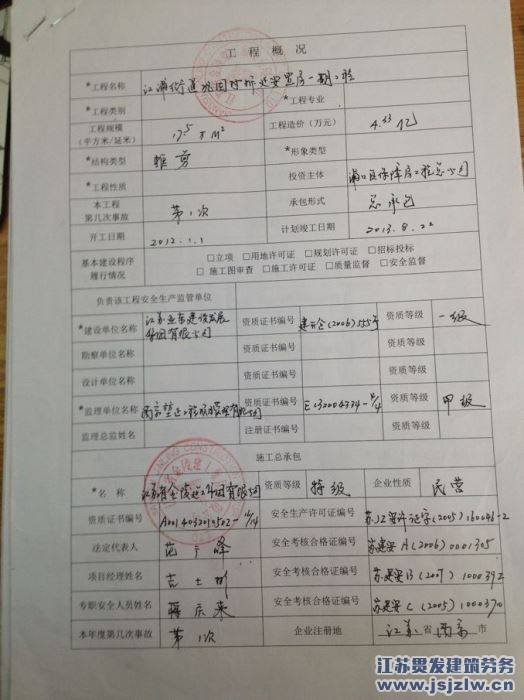 工程概况
*工程名称 江浦街道巩固村拆迁安置房一期工程
*工程类别 *工程专业
工程规模 17.5万m² 工程造价（万元） 4.43亿
（平方米/延米）
*结构类型 框剪 *形象类型
*工程性质 投资主体 浦口区保障房工程总公司
本工程 第1次 承包形式 总承包
第几次事故
开工日期 2012.1.1 计划竣工日期 2013.8.22
基本建设程序 □立项 □用地许可证 □规划许可证 □招标投标
履行情况 □施工图审查 □施工许可证 □质量监督 □安全监督
负责该工程安全生产监管单位
*建设单位名称 江苏 建设发展 资质证书编号 (2006)155号 资质等级 一级
集团有限公司
勘察单位名称 资质证书编号 资质等级
设计单位名称 资质证书编号 资质等级
*监理单位名称 南京 工程 有限公司 资质证书编号 E132004334-4/4 资质等级 甲级
监理总监姓名 注册证书编号
施工总承包
*名 称 江苏省金陵建工集团有限公司 资质等级 特级 企业性质 民营
资质证书编号 A0014032010502- 安全生产许可证编号 苏JZ安许证字(2005)160046-2
法定代表人 范广峰 安全考核合格证编号 苏建安A(2006)0001305
项目经理姓名 吉 安全考核合格证编号 苏建安B(2007)1000392
专职安全人员姓名 蒋庆来 安全考核合格证编号 苏建安C(2005)1000370
本年度第几次事故 第1次 企业注册地 江苏省南京市
江苏贯发建筑劳务
www.jsjzlw.cn